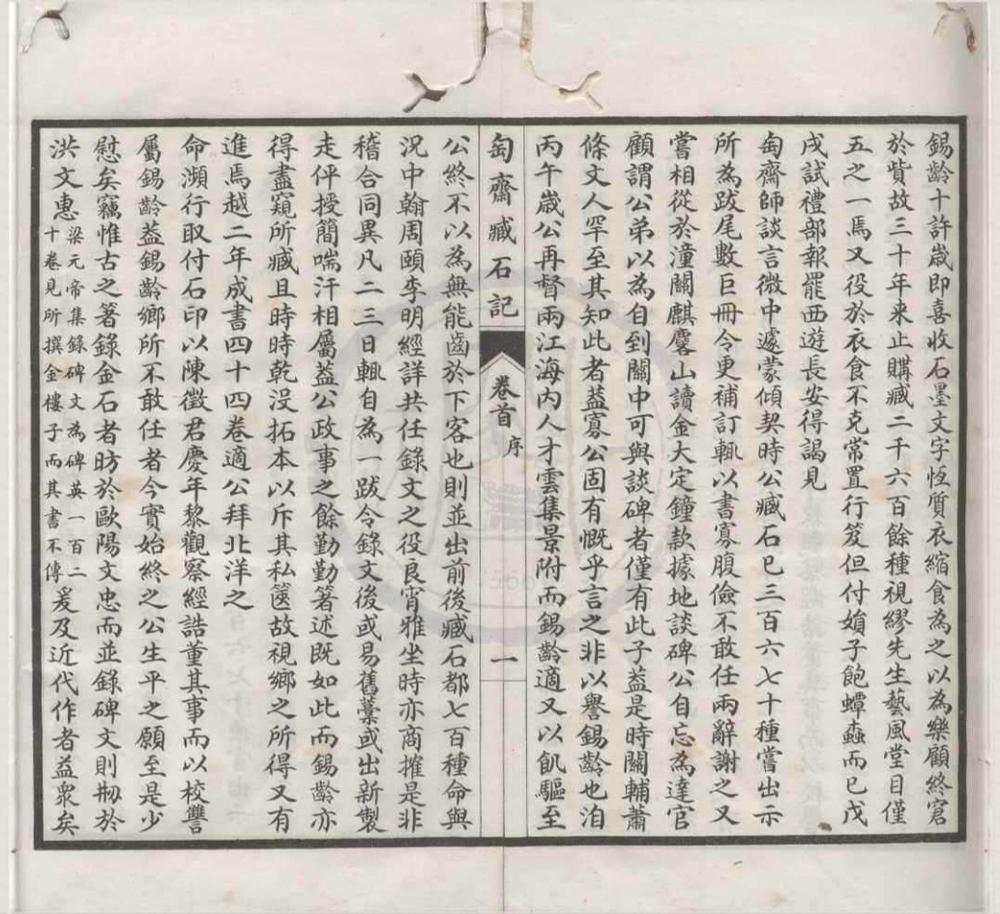 錫齡十許歲即喜收石墨文字恆質衣縮食為之以為樂顧終窘
於貲故三十年來止購臧二千六百餘種視繆先生藝風堂目僅
五之一焉又役於衣食不克常置行笈但付嬪子飽蟫蝨而已戊
戌試禮部報罷西遊長安得謁見
匋齋師談言微中遽蒙傾契時公臧石已三百六七十種嘗出示
所為跋尾數巨冊令更補訂輒以書寡腹儉不敢任兩辭謝之又
嘗相從於潼關麒麐山讀金大定鐘款據地談碑公自忘為達官
顧謂公弟以為自到關中可與談碑者僅有此子蓋是時關輔蕭
條文人罕至其知此者蓋寡公固有慨乎言之非以譽錫齡也洎
丙午歲公再督兩江海內人才雲集景附而錫齡適又以飢驅至
匋齋臧石記 卷首 序 一
公終不以為無能齒於下客也則並出前後臧石都七百種命與
況中翰周頤李明經詳共任錄文之役良宵雅坐時亦商搉是非
稽合同異凡二三日輒自為一跋令錄文後或易舊藁或出新製
走伻授簡喘汗相屬蓋公政事之餘勤勤箸述既如此而錫齡亦
得盡窺所臧且時時乾沒拓本以斥其私篋故視鄉之所得又有
進焉越二年成書四十四卷適公拜北洋之
命瀕行取付石印以陳徵君慶年黎觀察經誥董其事而以校讐
屬錫齡蓋錫齡鄉所不敢任者今實始終之公生平之願至是少
慰矣竊惟古之著錄金石者昉於歐陽文忠而並錄碑文則刱於
洪文惠梁元帝集錄碑文為碑英一百二十卷見所撰金樓子而其書不傳爰及近代作者益衆矣